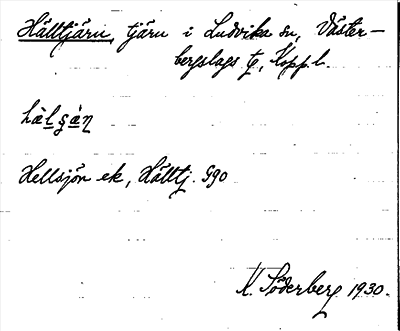 Hälltjärn, tjärn i Ludvika sn, Väster-
bergslags tg, Kopp.l.
hɛ̀lʂɑ̀n
Hellsjön ek, Hälltj. Ggo
K. Söderberg 1930.